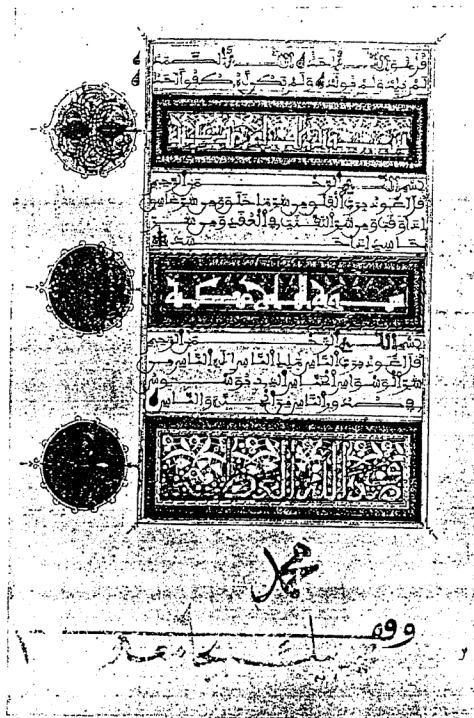 قل هو الله أحد الله الصمد
لم يلد ولم يولد ولم يكن له كفوا أحد
بسم الله الرحمن الرحيم
قل أعوذ برب الفلق من شر ما خلق ومن شر غاسق
إذا وقب ومن شر النفثت في العقد ومن شر
حاسد إذا حسد
بسم الله الرحمن الرحيم
قل أعوذ برب الناس ملك الناس إله الناس من
شر الوسواس الخناس الذي يوسوس
في صدور الناس من الجنة والناس
صدق الله العظيم
محمد